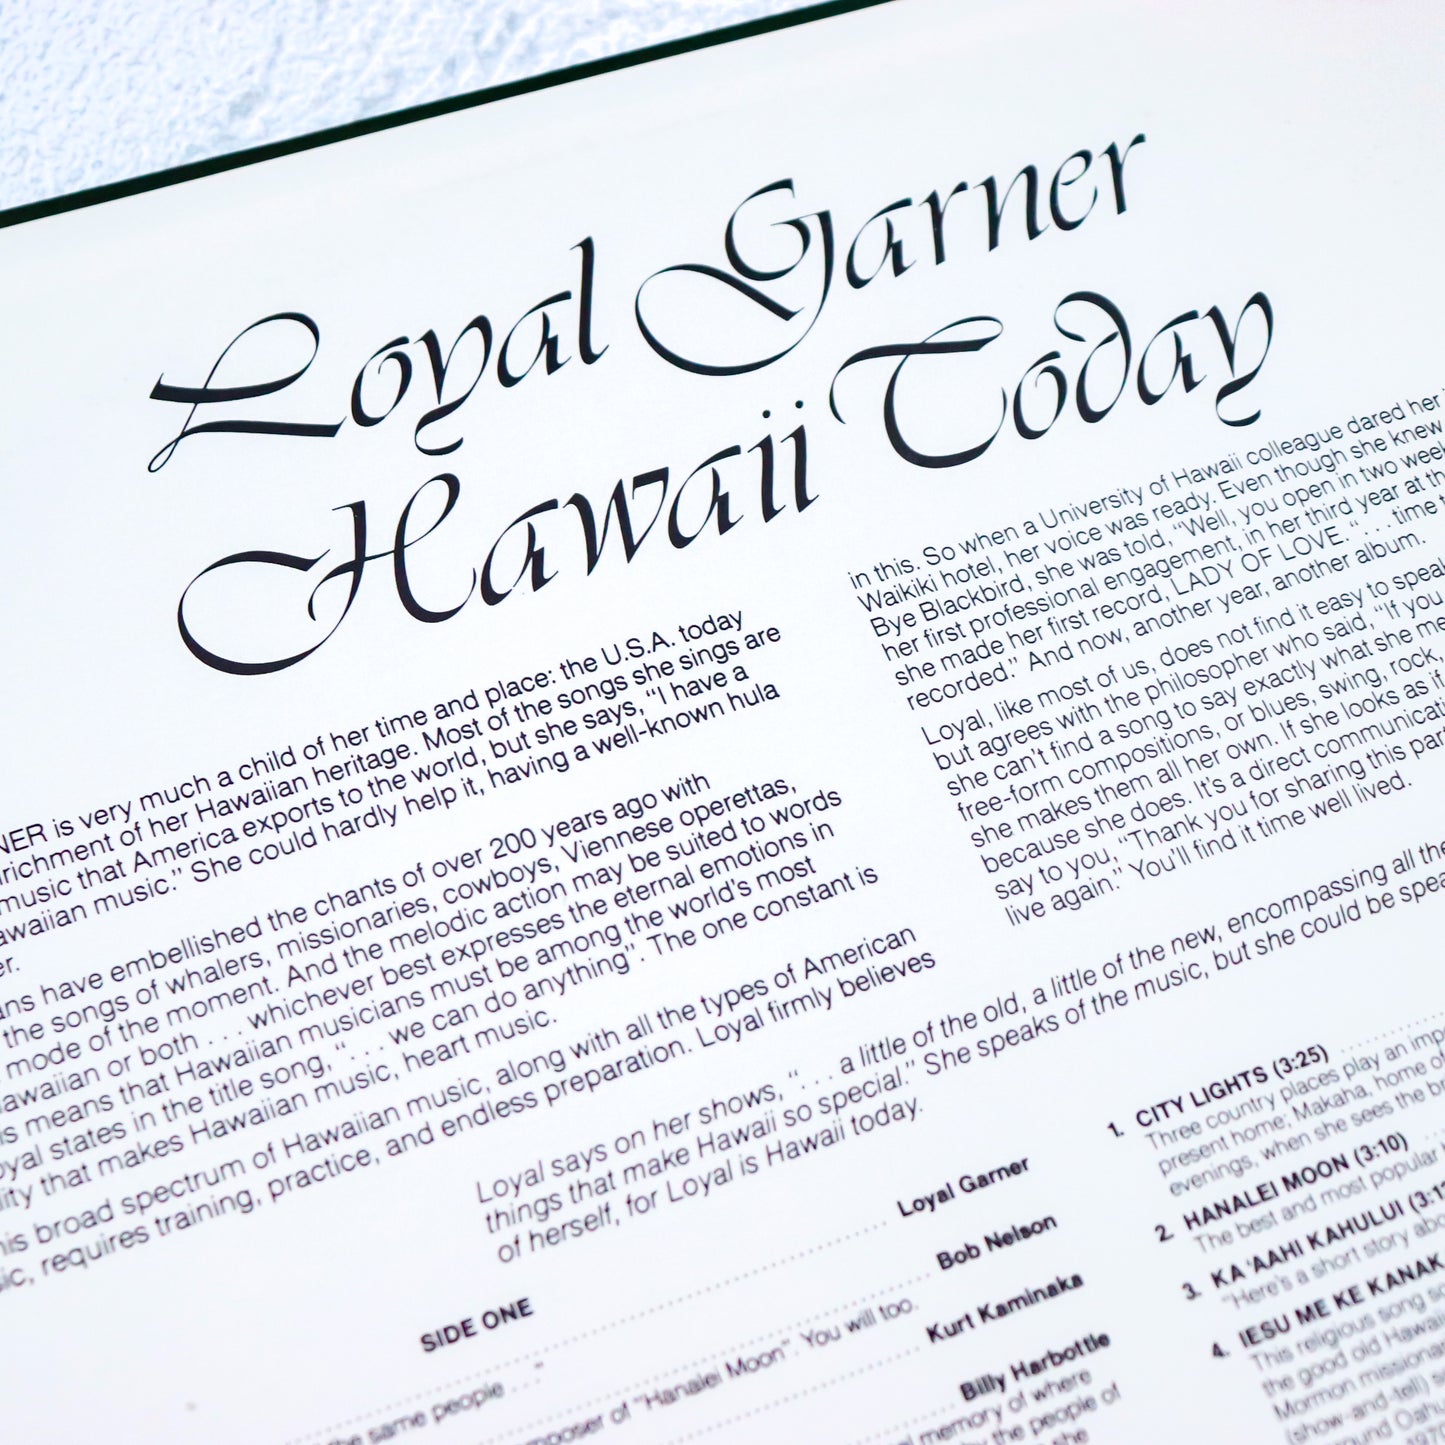 Loyal Garner
Hawaii Today
NER is very much a child of her time and place: the U.S.A. today
richment of her Hawaiian heritage. Most of the songs she sings are
music that America exports to the world, but she says, "I have a
awaiian music." She could hardly help it, having a well-known hula
er.
ns have embellished the chants of over 200 years ago with
the songs of whalers, missionaries, cowboys, Viennese operettas,
mode of the moment. And the melodic action may be suited to words
awaiian or both . . . whichever best expresses the eternal emotions in
is means that Hawaiian musicians must be among the world's most
oyal states in the title song, ". . . we can do anything". The one constant is
lity that makes Hawaiian music, heart music.
his broad spectrum of Hawaiian music, along with all the types of American
ic, requires training, practice, and endless preparation. Loyal firmly believes
in this. So when a University of Hawaii colleague dared her
Waikiki hotel, her voice was ready. Even though she knew
Bye Blackbird, she was told, "Well, you open in two week
her first professional engagement, in her third year at th
she made her first record, LADY OF LOVE. ". . . time t
recorded." And now, another year, another album.
Loyal, like most of us, does not find it easy to speak
but agrees with the philosopher who said, "If you
she can't find a song to say exactly what she me
free-form compositions, or blues, swing, rock,
she makes them all her own. If she looks as if
because she does. It's a direct communicati
say to you, "Thank you for sharing this part
live again." You'll find it time well lived.
Loyal says on her shows, ". . . a little of the old, a little of the new, encompassing all the
things that make Hawaii so special." She speaks of the music, but she could be spea
of herself, for Loyal is Hawaii today.
SIDE ONE
Loyal Garner
the same people . . ."
Bob Nelson
mposer of "Hanalei Moon". You will too.
Kurt Kaminaka
Billy Harbottle
memory of where
by the people of
she
1. CITY LIGHTS (3:25)
Three country places play an imp
present home; Makaha, home of
evenings, when she sees the br
2. HANALEI MOON (3:10)
The best and most popular
3. KA 'AAHI KAHULUI (3:1
"Here's a short story abo
4. IESU ME KE KANAK
This religious song s
the good old Hawai
Mormon missionar
(show-and-tell) s
ound Oahu